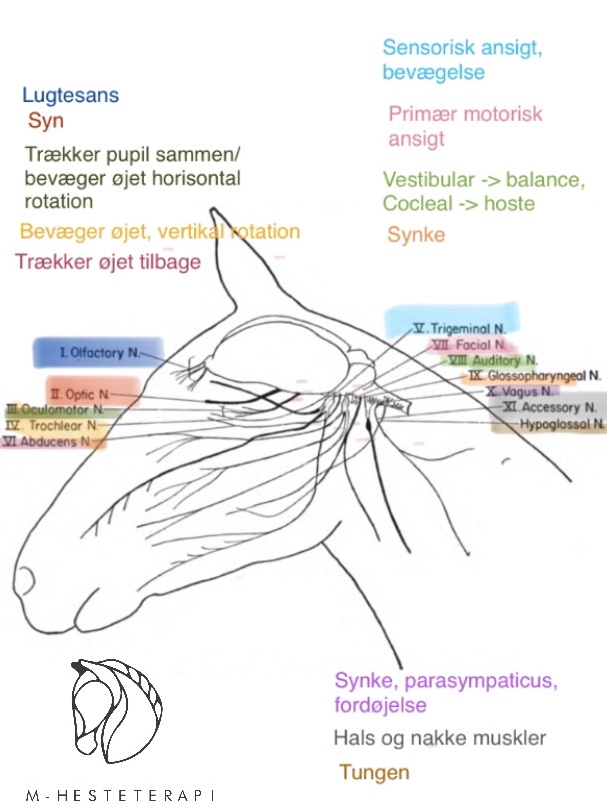 Sensorisk ansigt,
bevægelse
Lugtesans
Syn
Primær motorisk
ansigt
Trækker pupil sammen/
bevæger øjet horisontal
rotation
Vestibular -> balance,
Cocleal -> hoste
Bevæger øjet, vertikal rotation
Synke
Trækker øjet tilbage
V. Trigeminal N.
VII. Facial N.
VIII Auditory N.
IX. Glossopharyngeal N.
X. Vagus N.
XI. Accessory N.
Hypoglossal N.
I. Olfactory N.
II. Optic N.
III Oculomotor N.
IV. Trochlear N.
VI Abducens N.
Synke, parasympaticus,
fordøjelse
Hals og nakke muskler
Tungen
M-HESTETERAPI